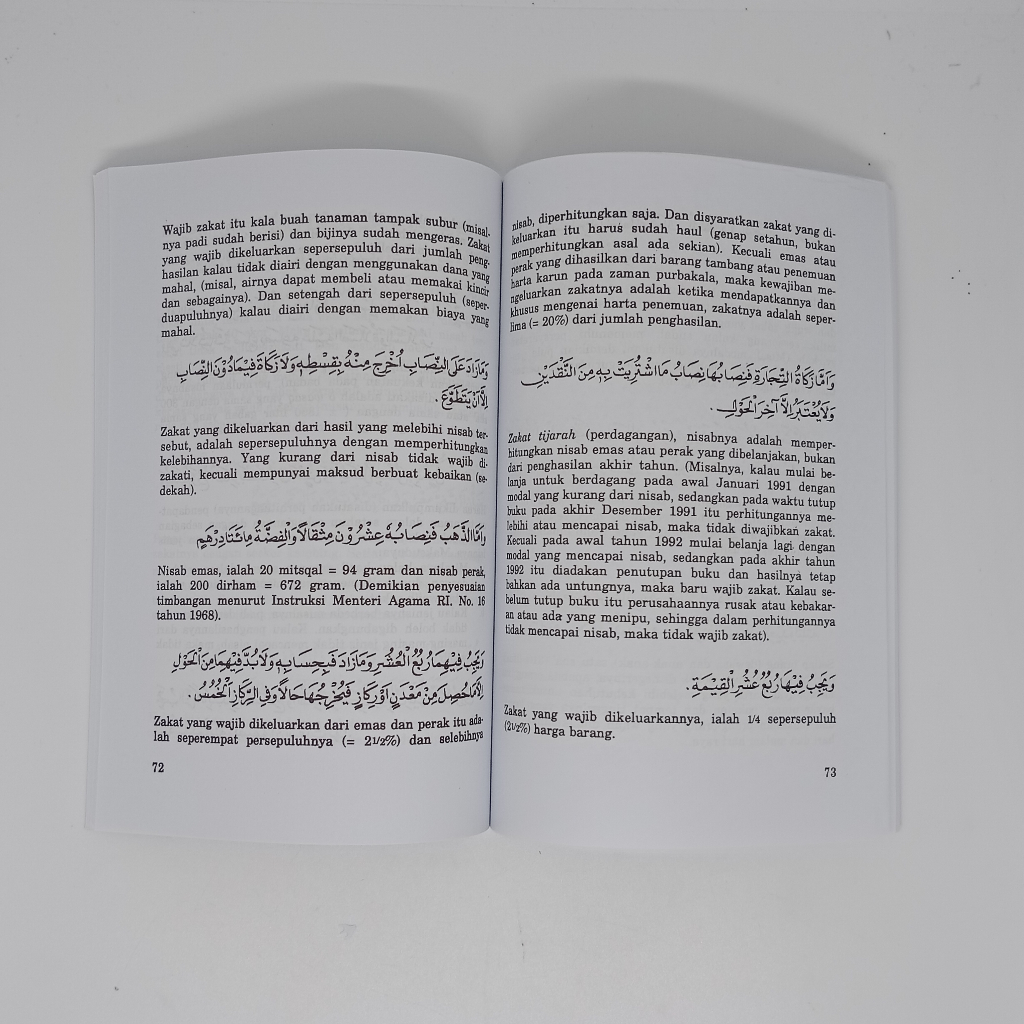 Wajib zakat itu kala buah tanaman tampak subur (misal-
nya padi sudah berisi) dan bijinya sudah mengeras. Zakat
yang wajib dikeluarkan sepersepuluh dari jumlah peng-
hasilan kalau tidak diairi dengan menggunakan dana yang
mahal, (misal, airnya dapat membeli atau memakai kincir
dan sebagainya). Dan setengah dari sepersepuluh (seper-
duapuluhnya) kalau diairi dengan memakan biaya yang
mahal.
وَمَازَادَ عَلَى النِّصَابِ اُخْرِجَ مِنْهُ بِقِسْطِهِ وَلَا زَكَاةَ فِيْمَا دُوْنَ النِّصَابِ
اِلَّا اَنْ يَتَطَوَّعَ .
Zakat yang dikeluarkan dari hasil yang melebihi nisab ter-
sebut, adalah sepersepuluhnya dengan memperhitungkan
kelebihannya. Yang kurang dari nisab tidak wajib di-
zakati, kecuali mempunyai maksud berbuat kebaikan (se-
dekah).
وَاَمَّا الذَّهَبُ فَنِصَابُهُ عِشْرُوْنَ مِثْقَالًا وَالْفِضَّةُ مِائَتَا دِرْهَمٍ
Nisab emas, ialah 20 mitsqal = 94 gram dan nisab perak,
ialah 200 dirham = 672 gram. (Demikian penyesuaian
timbangan menurut Instruksi Menteri Agama RI. No. 16
tahun 1968).
وَيَجِبُ فِيْهِمَا رُبُعُ الْعُشْرِ وَمَازَادَ فَبِحِسَابِهِ وَلَابُدَّ فِيْهِمَا مِنَ الْحَوْلِ
اِلَّا مَا حُصِلَ مِنْ مَعْدَنٍ اَوْ رِكَازٍ فَيُخْرِجُهَا حَالًا وَفِي الرِّكَازِ الْخُمُسُ .
Zakat yang wajib dikeluarkan dari emas dan perak itu ada-
lah seperempat persepuluhnya (= 21/2%) dan selebihnya
72
nisab, diperhitungkan saja. Dan disyaratkan zakat yang di-
keluarkan itu harus sudah haul (genap setahun, bukan
memperhitungkan asal ada sekian). Kecuali emas atau
perak yang dihasilkan dari barang tambang atau penemuan
harta karun pada zaman purbakala, maka kewajiban me-
ngeluarkan zakatnya adalah ketika mendapatkannya dan
khusus mengenai harta penemuan, zakatnya adalah seper-
lima (= 20%) dari jumlah penghasilan.
وَاَمَّا زَكَاةُ التِّجَارَةِ فَنِصَابُهَا نِصَابُ مَا اشْتُرِيَتْ بِهِ مِنَ النَّقْدَيْنِ
وَلَا يُعْتَبَرُ اِلَّا آخِرَ الْحَوْلِ .
Zakat tijarah (perdagangan), nisabnya adalah memper-
hitungkan nisab emas atau perak yang dibelanjakan, bukan
dari penghasilan akhir tahun. (Misalnya, kalau mulai be-
lanja untuk berdagang pada awal Januari 1991 dengan
modal yang kurang dari nisab, sedangkan pada waktu tutup
buku pada akhir Desember 1991 itu perhitungannya me-
lebihi atau mencapai nisab, maka tidak diwajibkan zakat.
Kecuali pada awal tahun 1992 mulai belanja lagi dengan
modal yang mencapai nisab, sedangkan pada akhir tahun
1992 itu diadakan penutupan buku dan hasilnya tetap
bahkan ada untungnya, maka baru wajib zakat. Kalau se-
belum tutup buku itu perusahaannya rusak atau kebakar-
an atau ada yang menipu, sehingga dalam perhitungannya
tidak mencapai nisab, maka tidak wajib zakat).
وَيَجِبُ فِيْهَا رُبُعُ عُشْرِ الْقِيْمَةِ .
Zakat yang wajib dikeluarkannya, ialah 1/4 sepersepuluh
(21/2%) harga barang.
73